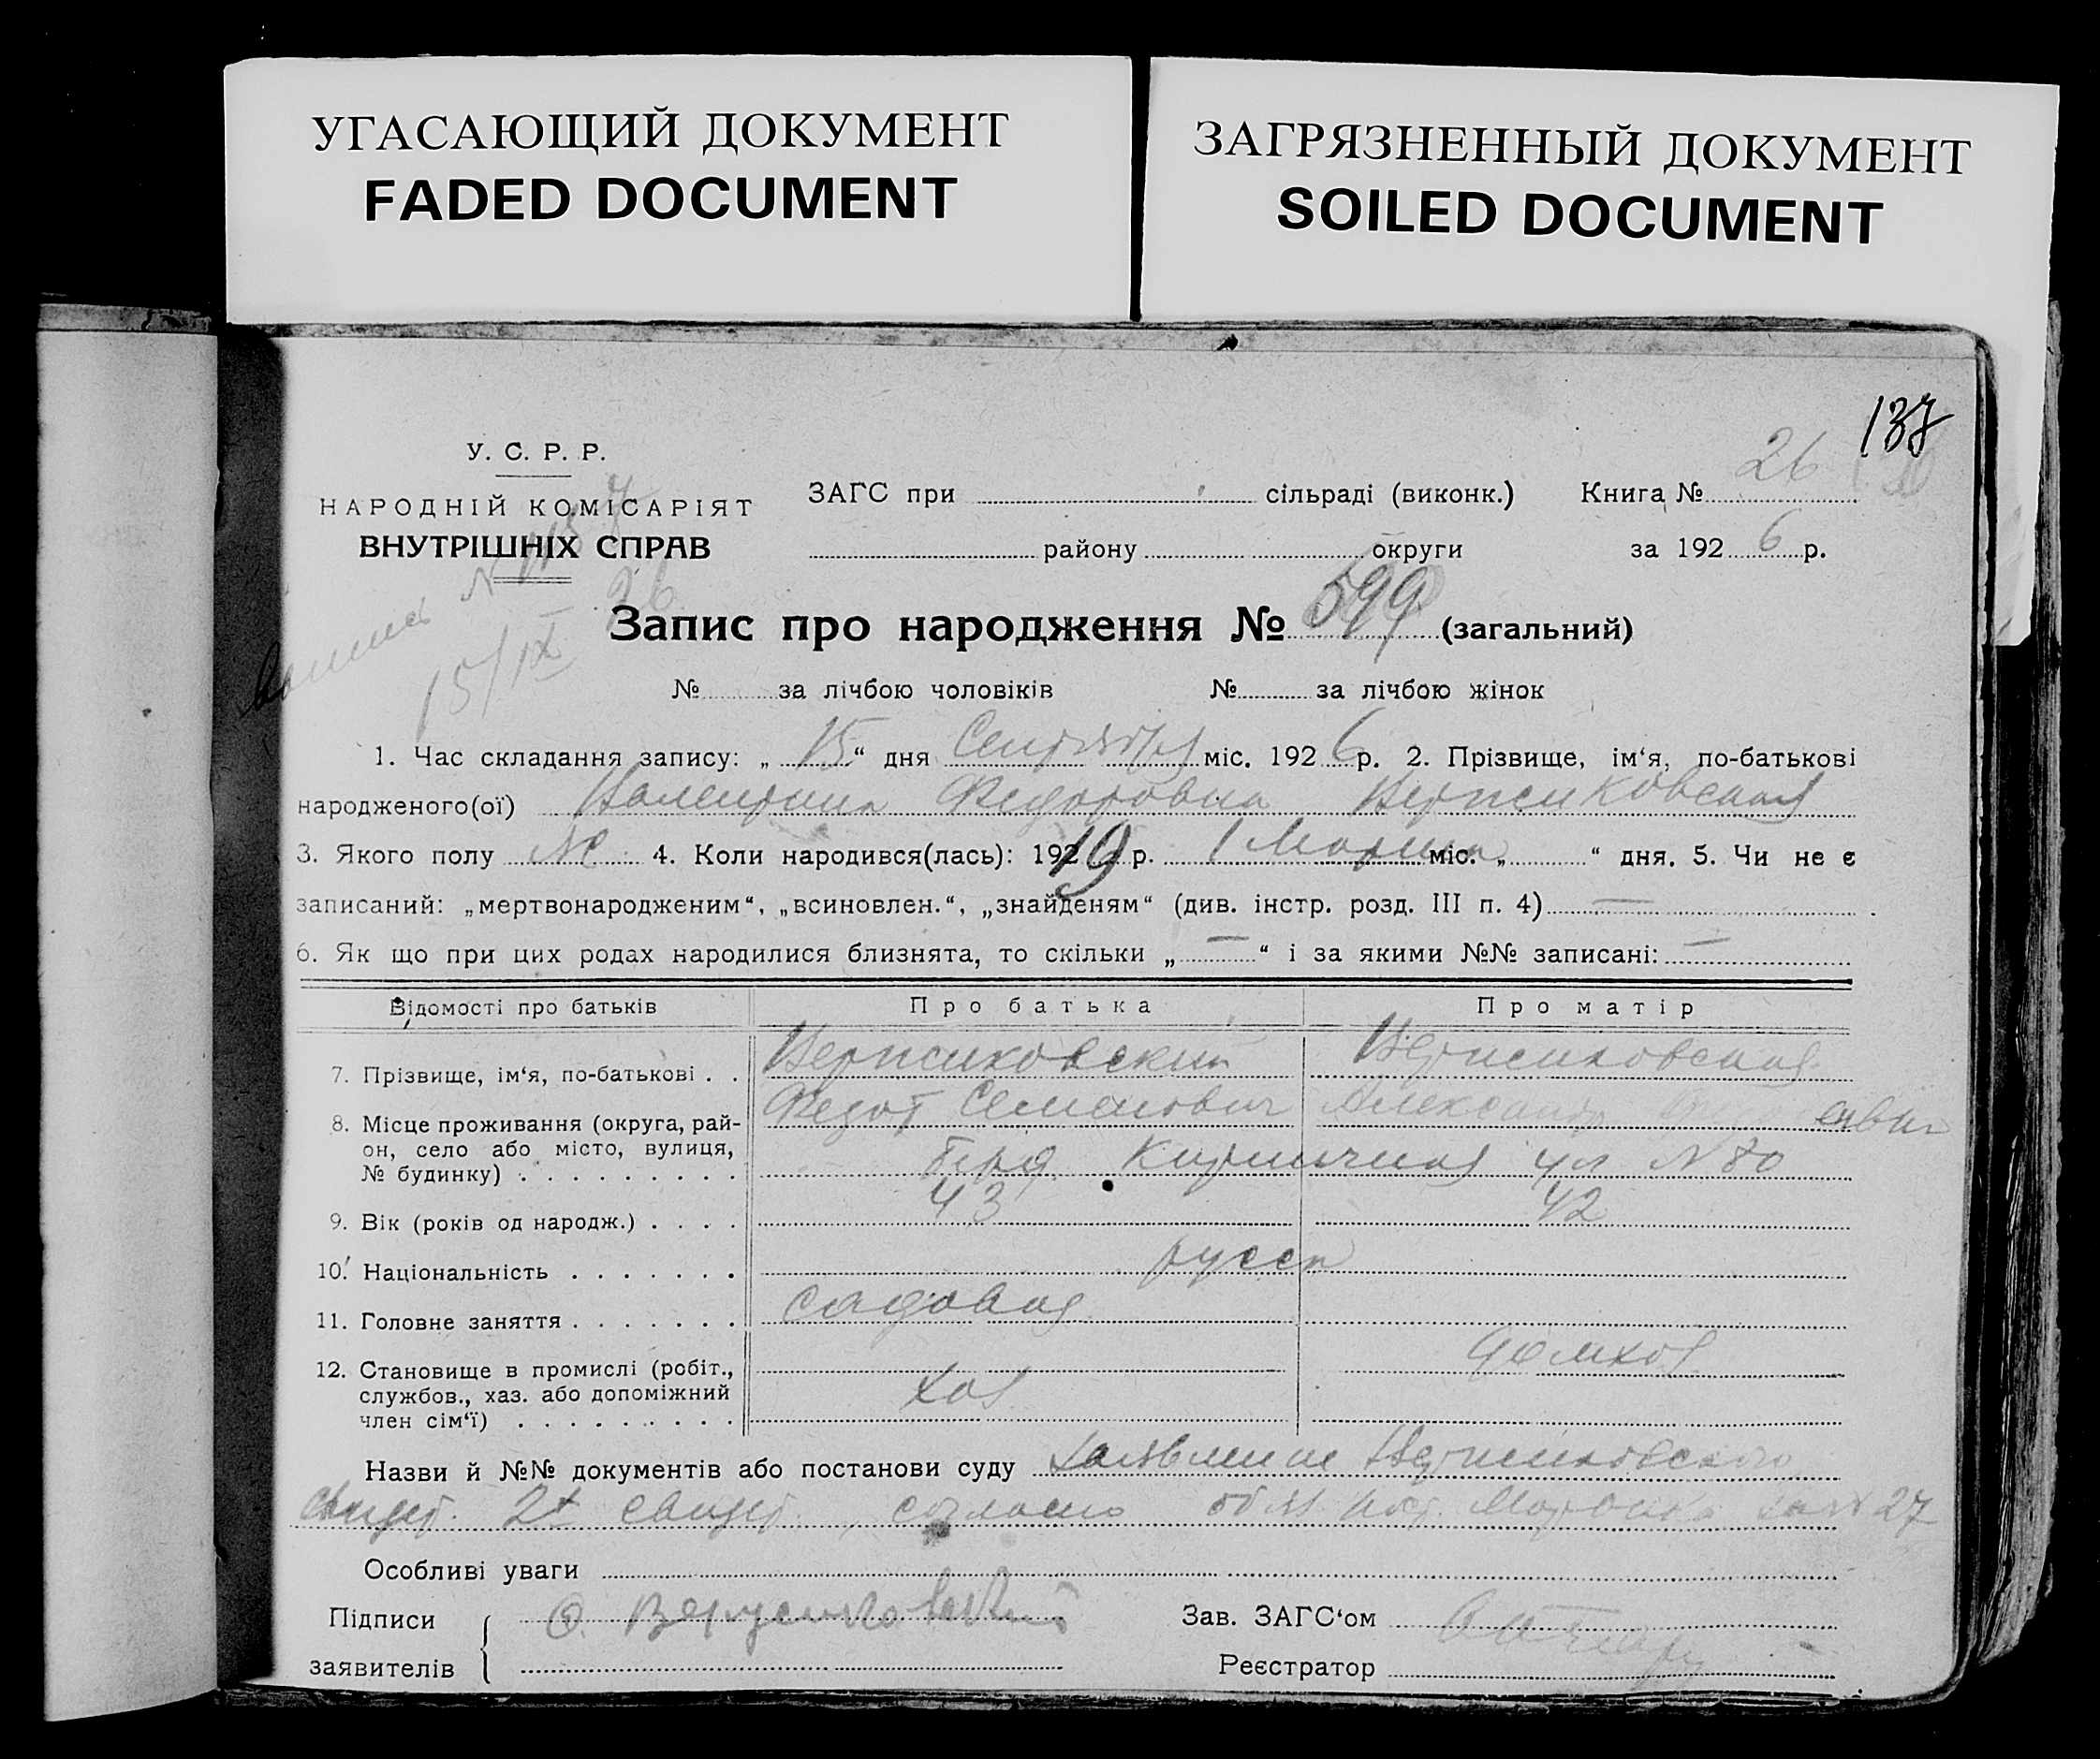 УГАСАЮЩИЙ ДОКУМЕНТ
FADED DOCUMENT
ЗАГРЯЗНЕННЫЙ ДОКУМЕНТ
SOILED DOCUMENT
137
У. С. Р. Р.
НАРОДНІЙ КОМІСАРІЯТ
ВНУТРІШНІХ СПРАВ
ЗАГС при сільраді (виконк.) Книга № 26
району округи за 1926 р.
15/IX 26
Запис про народження № 599 (загальний)
№ за лічбою чоловіків № за лічбою жінок
1. Час складання запису: „15“ дня Сентября міс. 1926 р. 2. Прізвище, ім‘я, по-батькові
народженого(ої) Валентина Федоровна
3. Якого полу 4. Коли народився(лась): 1919 р. 1 Марта міс. „ “ дня. 5. Чи не є
записаний: „мертвонародженим“, „всиновлен.“, „знайденям“ (див. інстр. розд. III п. 4) —
6. Як що при цих родах народилися близнята, то скільки „—“ і за якими №№ записані: —
Відомості про батьків Про батька Про матір
7. Прізвище, ім‘я, по-батькові . .
Федот Семенович
8. Місце проживання (округа, рай-
он, село або місто, вулиця,
№ будинку) . . . . . . . . . Кирпичная ул N 80
9. Вік (років од народж.) . . . . 43 42
10. Національність . . . . . . . русск
11. Головне заняття . . . . . . . садовая
12. Становище в промислі (робіт.,
службов., хаз. або допоміжний
член сім‘ї) . . . . . . . . . хоз домхоз
Назви й №№ документів або постанови суду заявление
2х свидет. согласно 27
Особливі уваги
Підписи
заявителів
Зав. ЗАГС‘ом
Реєстратор